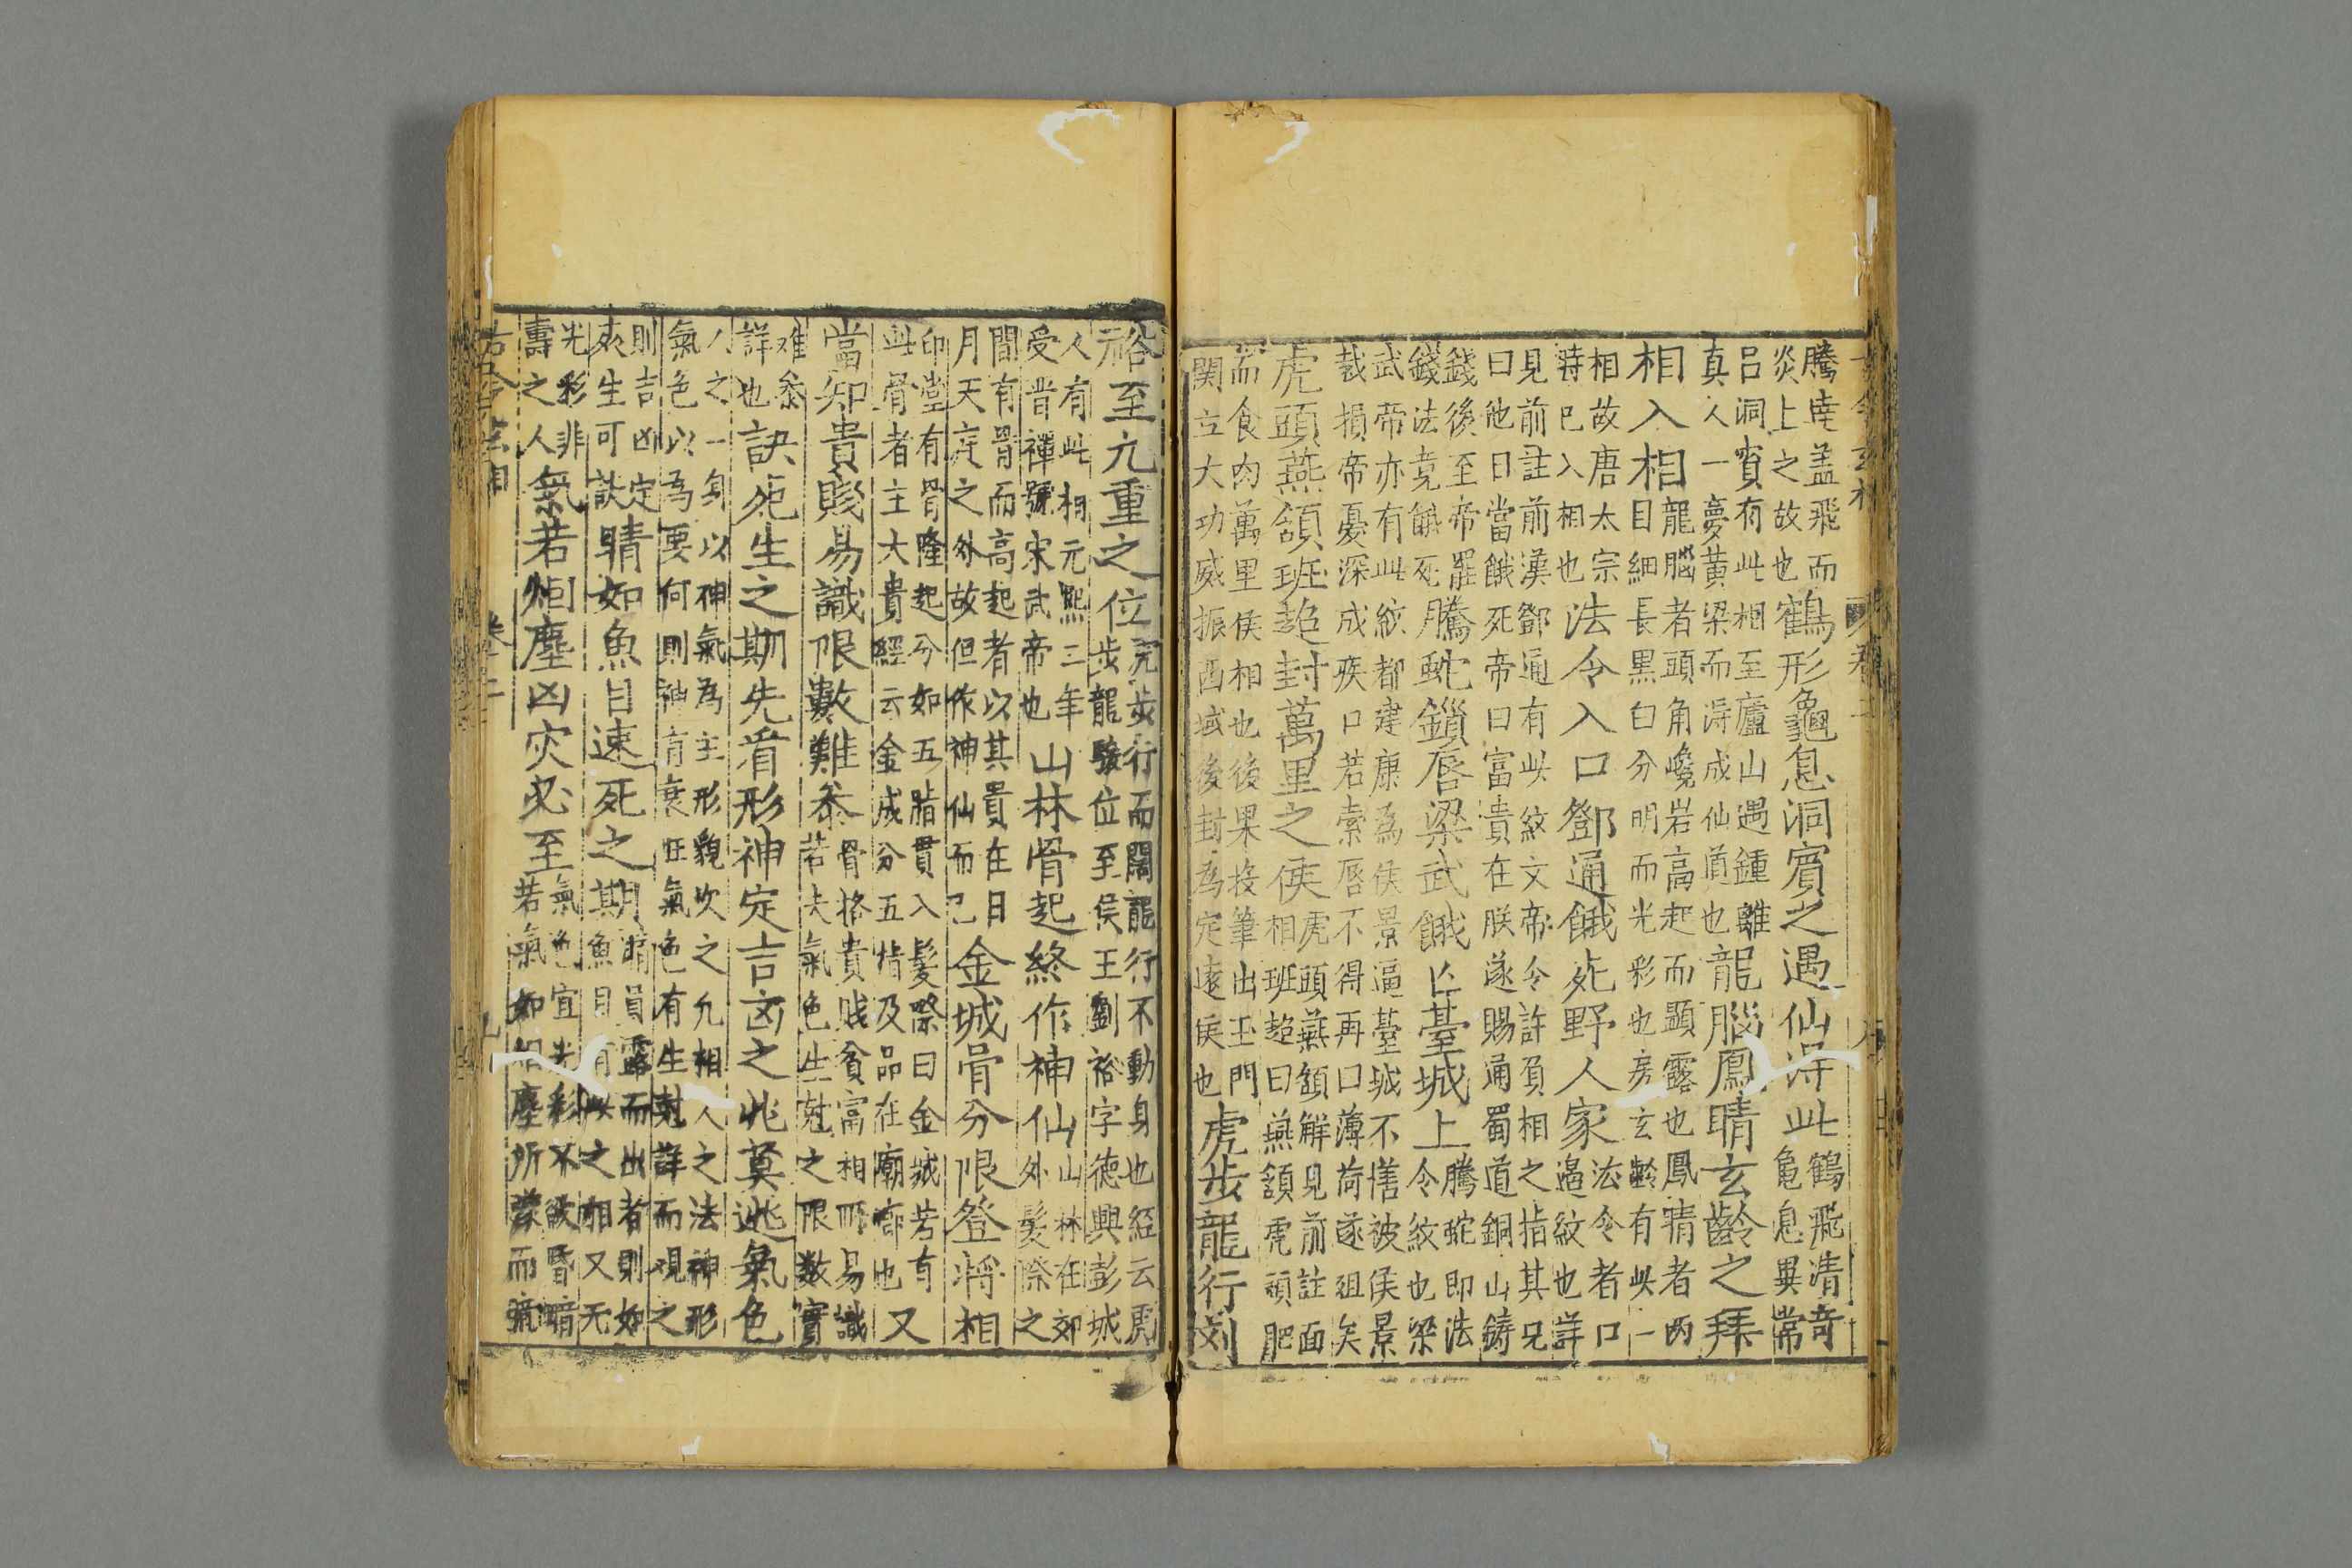 騰𡕒盖飛而
炎上之故也
鶴形龜息洞賓之遇仙淂此
鶴飛清奇
龜息異常
呂洞賓有此相至廬山遇鍾離
真人一夢黄梁而淂成仙道也
龍腦鳳睛玄齡之拜
相入相
龍腦者頭角巉岩高起而顕露也鳳睛者两
目細長黒白分明而光彩也房玄齡有此一
相故唐太宗
時已入相也
法令入口鄧通餓死野人家
法令者口
邉紋也詳
見前註前漢鄧通有此紋文帝令許負相之指其兄
曰他日當餓死帝曰富貴在朕遂賜通蜀道銅山鑄
錢後至帝罷
錢法竟餓死
騰蛇鎖唇梁武餓亡臺城上
騰蛇即法
令紋也梁
武帝亦有此紋都建康為侯景逼臺城不僐被侯景
裁損帝憂深成疾口若索唇不得再口薄荷遂殂矣
虎頭燕頷班超封萬里之侯
虎頭燕頷觧見前註面
相班超曰燕頷虎頭肥
而食肉萬里侯相也後果投筆出玉門
関立大功威振西域後封為定遠侯也
虎步龍行刘
裕至九重之位
虎步行而闊龍行不動身也經云虎
步龍驤位至侯王劉裕字德興彭城
人有此相元熙三年
受晋禪號宋武帝也
山林骨起終作神仙
山林在郊
外髮際之
間有骨而高起者以其貴在日
月天庭之外故但作神仙而已
金城骨分限登將相
印堂有骨隆起分如五指貫入髮際曰金城若有
此骨者主大貴經云金成分五指及品在廟廊也
又
當知貴賤易識限數難叅
骨格貴贱貧富相而易識
若夫氣色生尅之限数實
难叅
詳也
訣死生之期先㸔形神定吉凶之兆莫逃氣色
人之一身以神氣為主形貌次之凢相人之法神形
氣色以為要何則神有衰旺氣色有生尅詳而观之
則吉凶定
夾生可訣
睛如魚目速死之期
睛員露而出者則如
魚目有此之相又无
光彩非
壽之人
氣若烟塵凶灾必至
氣色宜光彩不欲昏暗
若氣如烟塵所蒙而暗
古今玄相 卷二